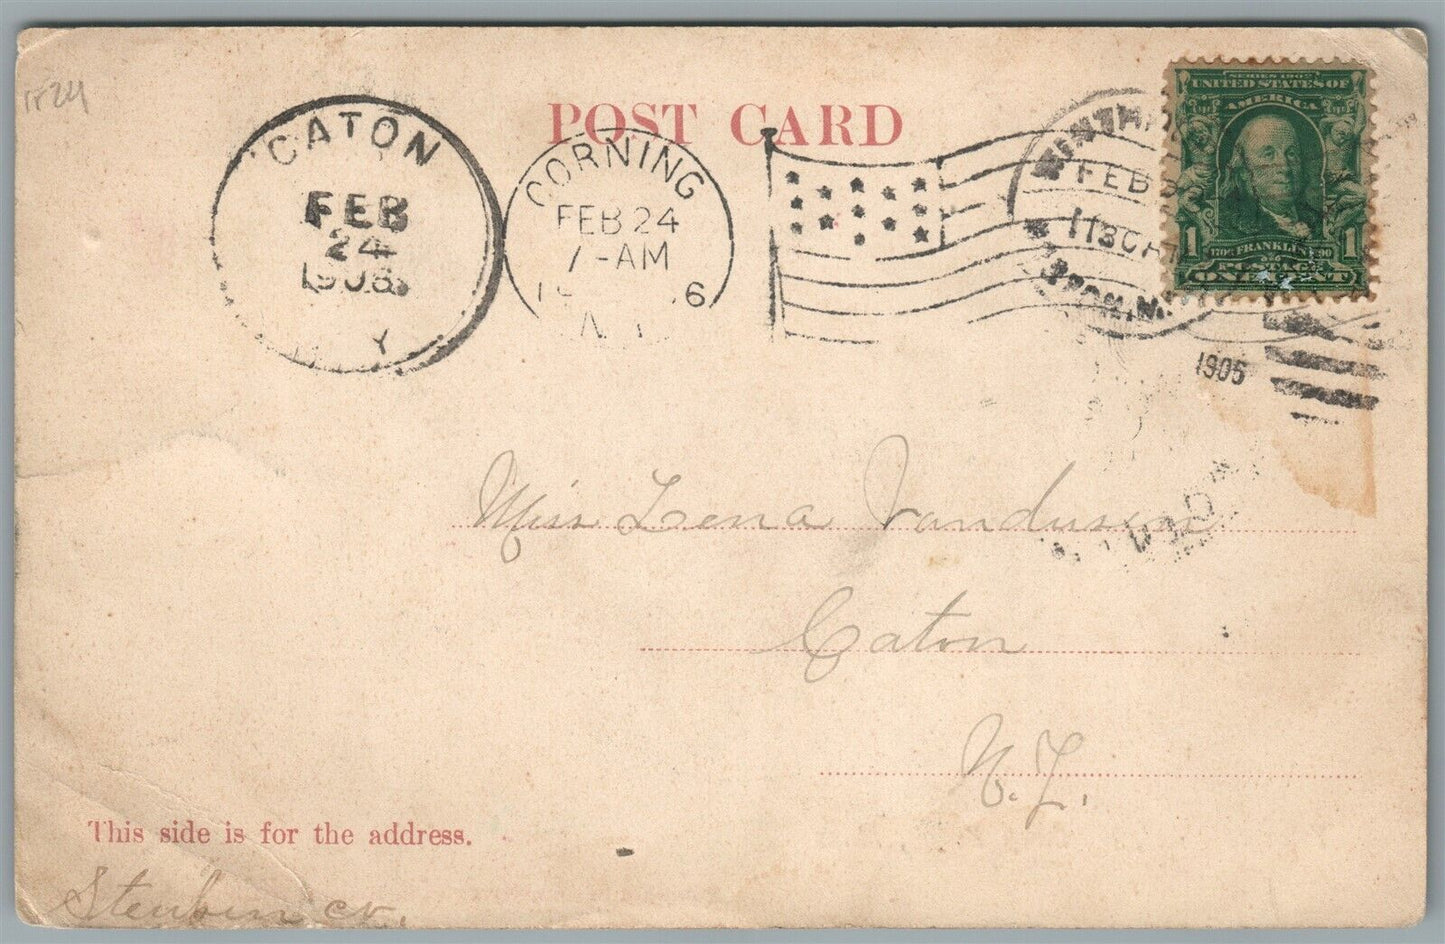 POST CARD
CATON
FEB
24
1906
Y
CORNING
FEB 24
7-AM
6
N.Y.
FEB
1130A
1905
SERIES 1902
UNITED STATES OF
AMERICA
1 1706 FRANKLIN 1790 1
POSTAGE
ONE CENT
Miss Lena Vandusen
Caton
N.Y.
This side is for the address.
Steuben co.